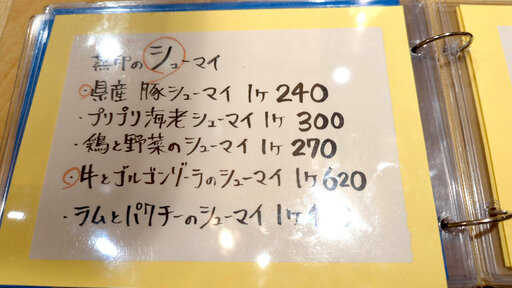 のシューマイ
県産 豚シューマイ 1ヶ 240
・プリプリ海老シューマイ 1ヶ 300
・鶏と野菜のシューマイ 1ヶ 270
牛とゴルゴンゾーラのシューマイ 1ヶ 620
・ラムとパクチーのシューマイ 1ヶ